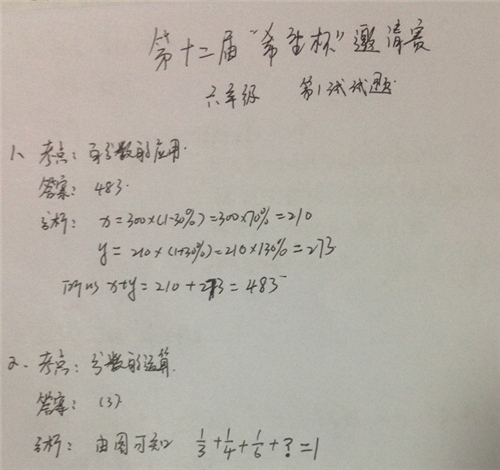 第十二届“希望杯”邀请赛
六年级 第1试试题
1、考点：百分数的应用.
答案：483.
分析：x=300×(1-30%)=300×70%=210
y=210×(1+30%)=210×130%=273
所以 x+y=210+273=483
2、考点：分数的运算.
答案：(3)
分析：由图可知 1/3+1/4+1/6+?=1